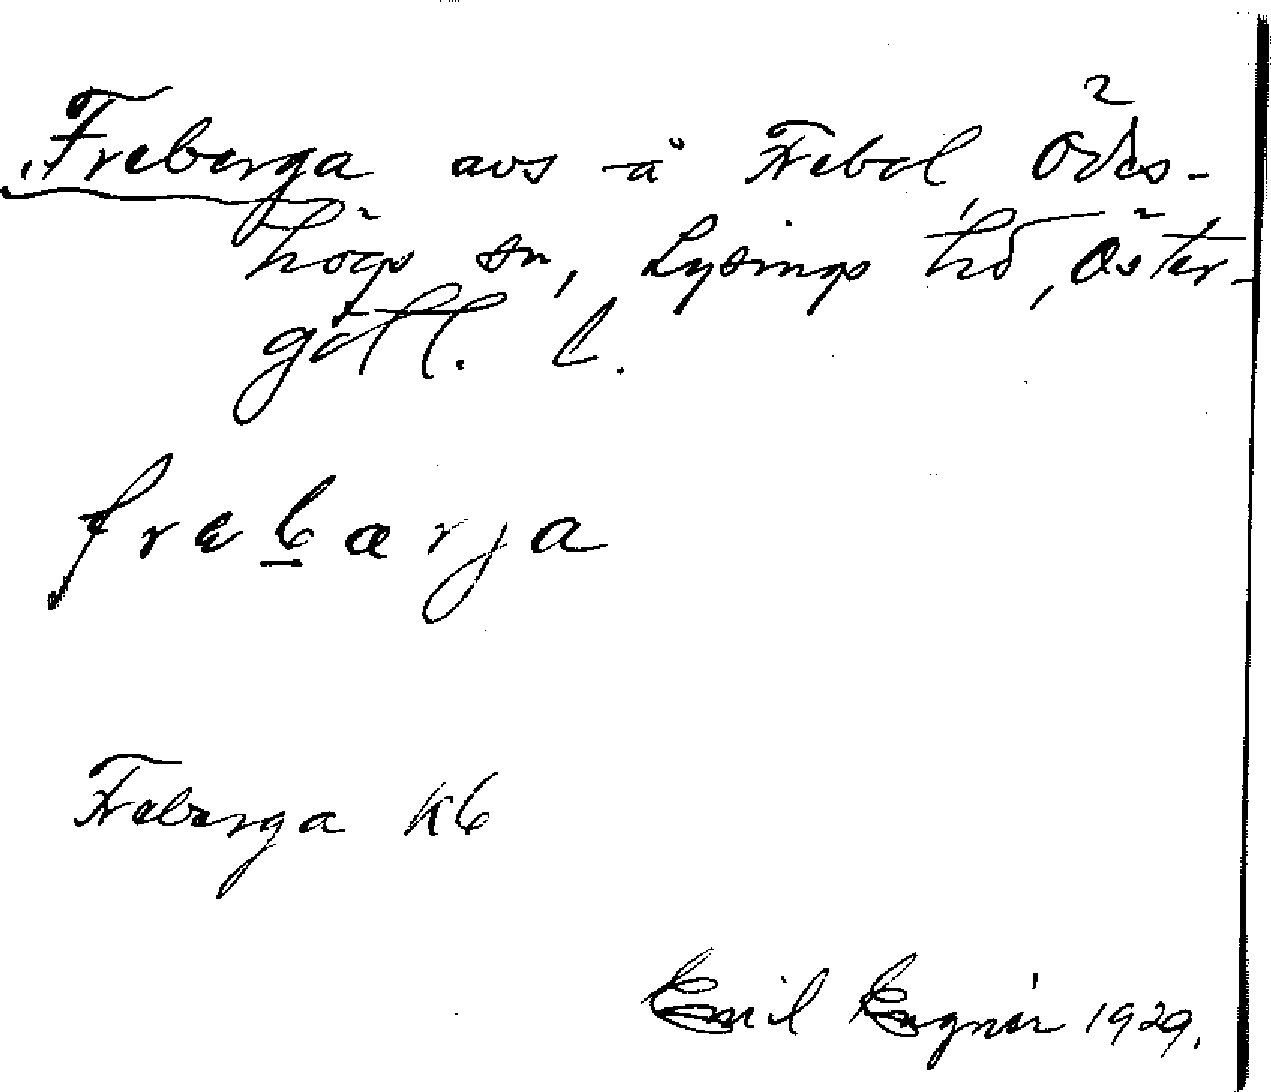 Freberga avs å Frebol Ödes-
högs sn, Lysings hd, Öster-
götl. l.
frebærja
Freberga kb
Emil Engnér 1929.